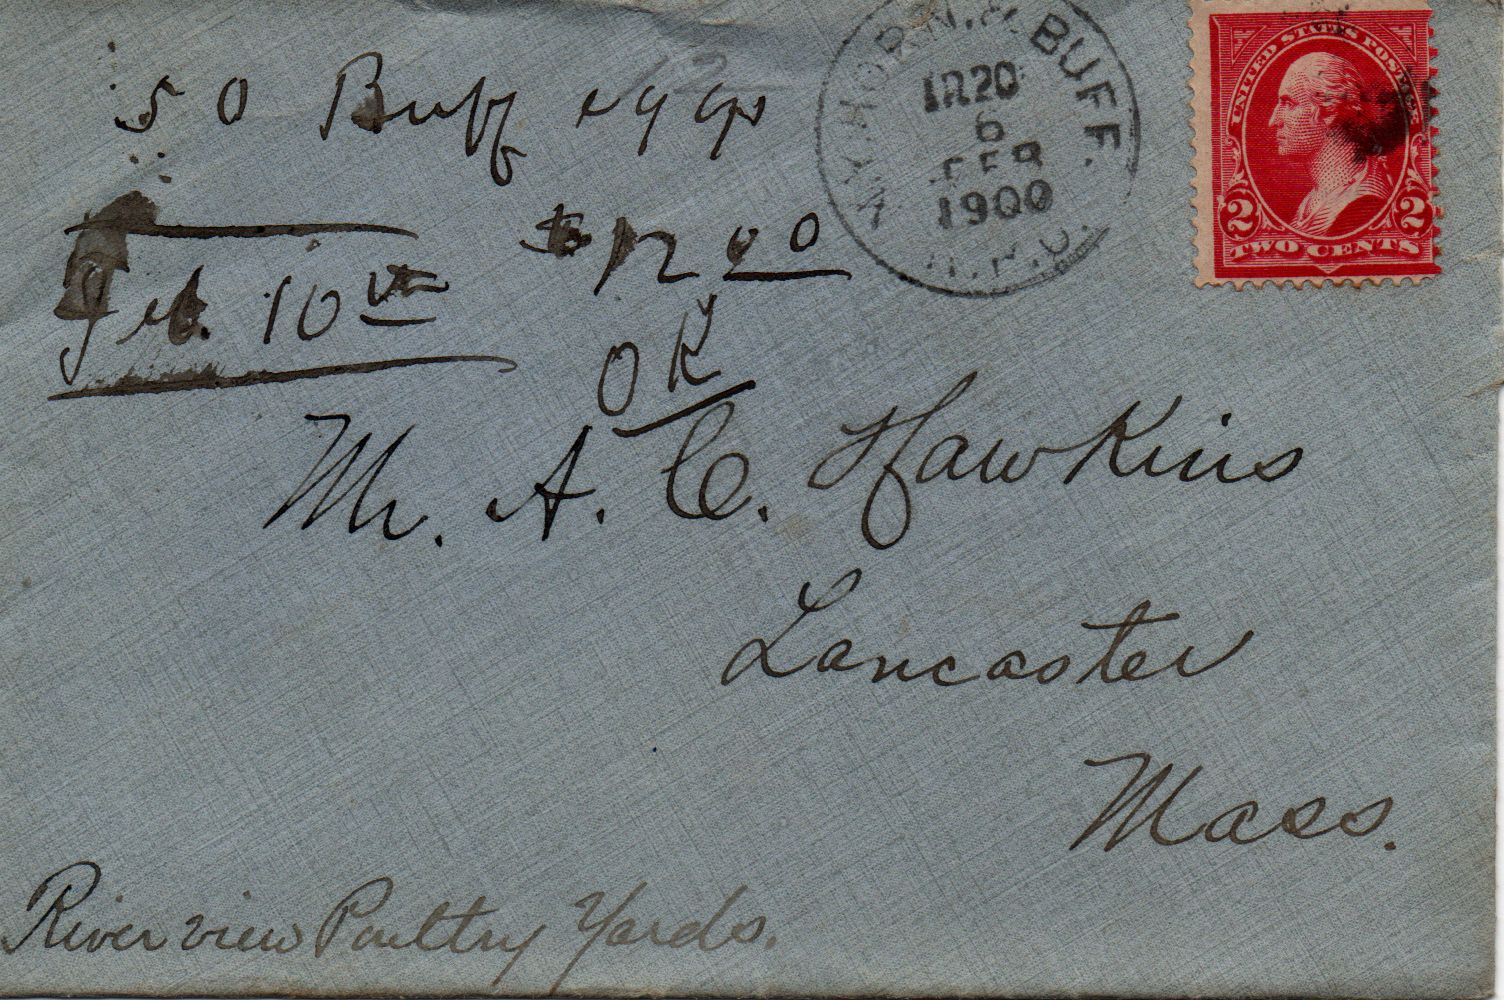 50 Buff eggs
Feb. 10th $12.00
OK
N.Y. HORN. & BUFF.
TR20
6
FEB
1900
R.P.O.
UNITED STATES POSTAGE
2 2
TWO CENTS
Mr. A. C. Hawkins
Lancaster
Mass.
River view Poultry Yards.